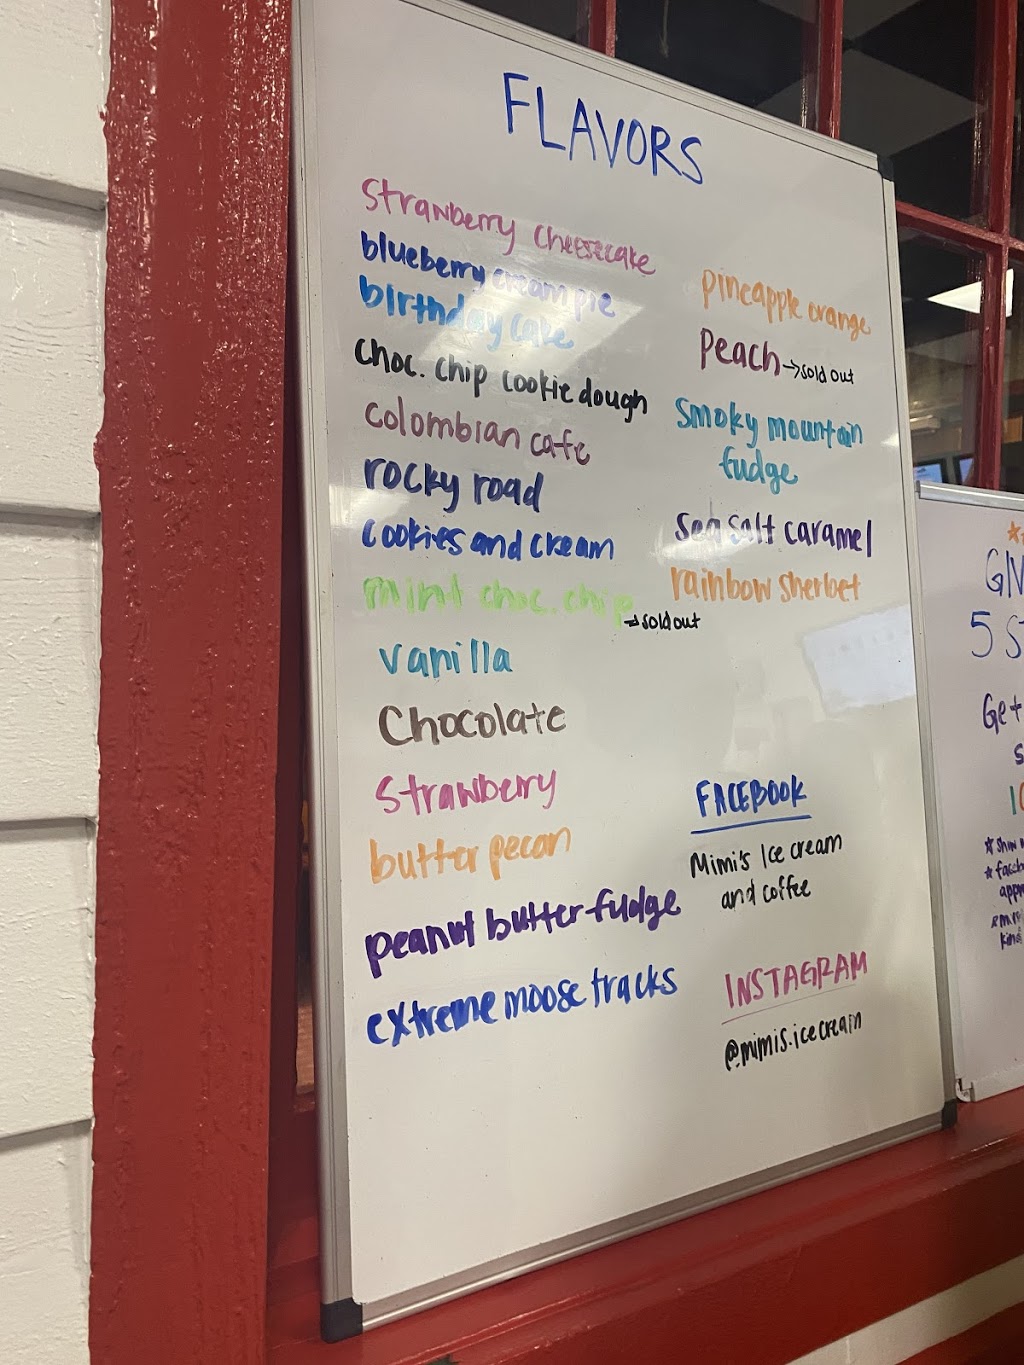 FLAVORS
strawberry cheesecake
blueberry cream pie
birthday cake
choc. chip cookie dough
colombian cafe
rocky road
cookies and cream
mint choc. chip → sold out
vanilla
Chocolate
strawberry
butter pecan
peanut butter fudge
extreme moose tracks
pineapple orange
Peach → sold out
smoky mountain
fudge
sea salt caramel
rainbow sherbet
FACEBOOK
Mimi's Ice cream
and coffee
INSTAGRAM
@mimis.icecream
5
Get